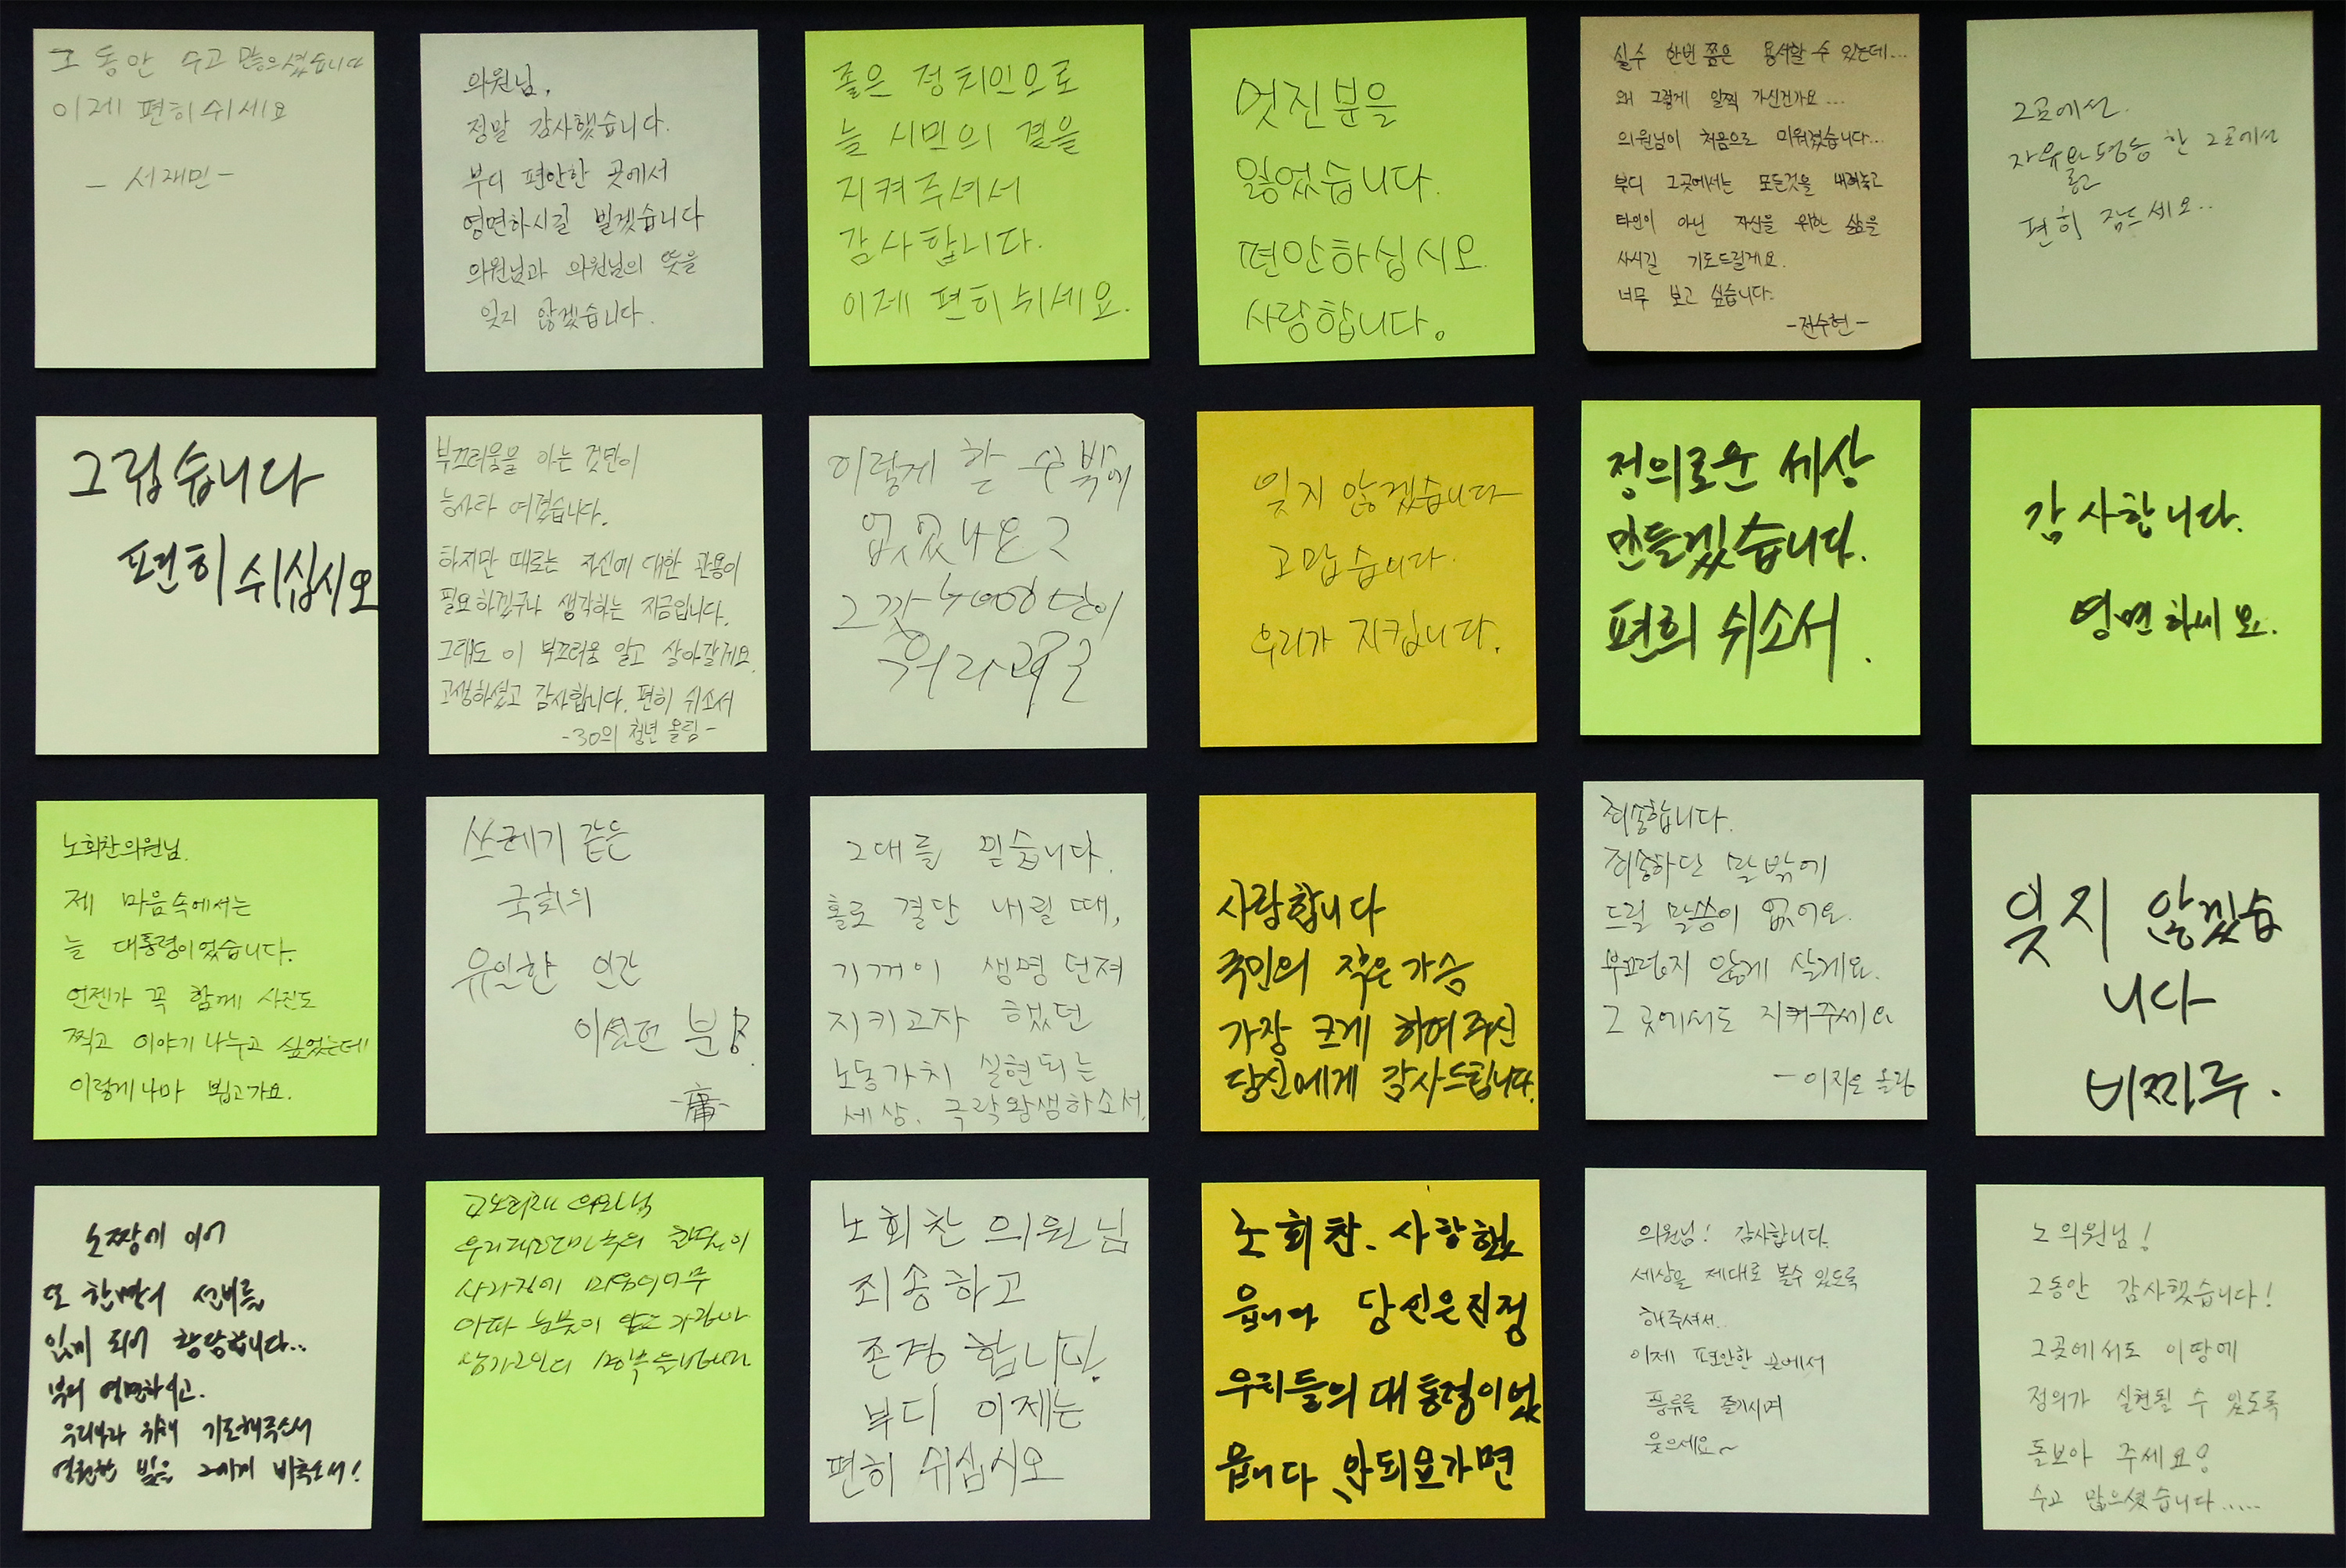 그 동안 수고 많으셨습니다
이제 편히 쉬세요
- 서재민 -
의원님,
정말 감사했습니다.
부디 편안한 곳에서
영면하시길 빌겠습니다
의원님과 의원님의 뜻을
잊지 않겠습니다.
좋은 정치인으로
늘 시민의 곁을
지켜주셔서
감사합니다.
이제 편히 쉬세요.
멋진분을
잃었습니다.
편안하십시오.
사랑합니다.
실수 한번 쯤은 용서할 수 있는데...
왜 그렇게 일찍 가신건가요...
의원님이 처음으로 미워졌습니다...
부디 그곳에서는 모든것을 내려놓고
타인이 아닌 자신을 위한 삶을
사시길 기도드릴게요.
너무 보고 싶습니다.
-전수현-
그곳에선.
자유롭고 평등한 그곳에선
편히 잠드세요..
그립습니다
편히 쉬십시오
부끄러움을 아는 것만이
능사라 여겼습니다.
하지만 때로는 자신에 대한 관용이
필요하겠구나 생각하는 지금입니다.
그래도 이 부끄러움 알고 살아갈게요.
고생하셨고 감사합니다. 편히 쉬소서
-30의 청년 올림-
이렇게 할 수 밖에
없었나요?
그깟 4000만이
뭐라고?
잊지 않겠습니다
고맙습니다.
우리가 지킵니다.
정의로운 세상
만들겠습니다.
편희 쉬소서.
감사합니다.
영면하세요.
노회찬의원님.
제 마음속에서는
늘 대통령이었습니다.
언젠가 꼭 함께 사진도
찍고 이야기 나누고 싶었는데
이렇게나마 뵙고가요.
쓰레기 같은
국회의
유일한 인간
이셨던 분!
그대를 믿습니다.
홀로 결단 내릴 때,
기꺼이 생명 던져
지키고자 했던
노동가치 실현되는
세상. 극락왕생하소서.
사랑합니다
국민의 작은가슴
가장 크게 하여주신
당신에게 감사드립니다.
죄송합니다.
죄송하단 말밖에
드릴 말씀이 없어요.
부끄럽지 않게 살게요.
그 곳에서도 지켜주세요
- 이지은 올림
잊지 않겠습
니다
비찌루.
노짱에 이어
또 한명의 선비를
잃게 되어 황망합니다...
부디 영면하시고.
우리나라 위해 기도해주소서
영원한 빛을 그에게 비추소서!
의원님
우리대한민국의
사라짐에 마음이너무
아파 눈물이 앞을
노회찬 의원님
죄송하고
존경 합니다.
부디 이제는
편히 쉬십시오
노회찬. 사랑했
읍니다 당신은진정
우리들의대통령이었
읍니다 안되요가면
의원님! 감사합니다.
세상을 제대로 볼수 있도록
해주셔서..
이제 편안한 곳에서
풍류를 즐기시며
웃으세요~
노 의원님!
그동안 감사했습니다!
그곳에서도 이땅에
정의가 실현될 수 있도록
돌보아 주세요!
수고 많으셨습니다.....